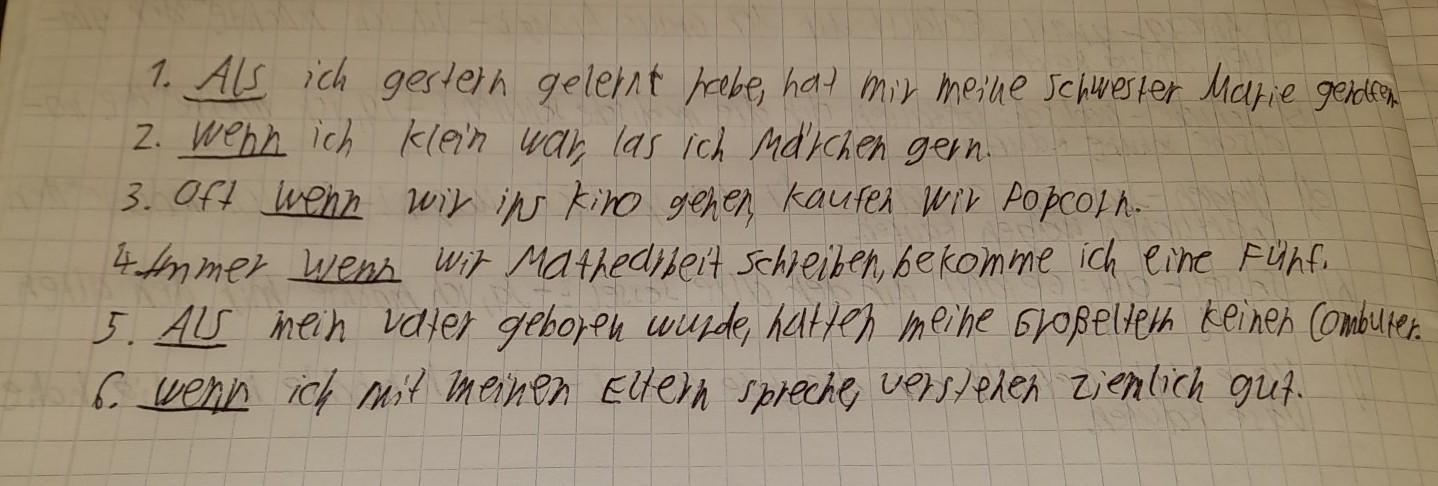 1. Als ich gestern gelernt habe, hat mir meine Schwester Marie geholfen
2. Wenn ich klein war, las ich Märchen gern.
3. Oft wenn wir ins Kino gehen, kaufen wir Popcorn.
4. Immer wenn wir Mathearbeit schreiben, bekomme ich eine Fünf.
5. Als mein Vater geboren wurde, hatten meine Großeltern keinen Combuter.
6. wenn ich mit meinen Eltern spreche, verstehen ziemlich gut.